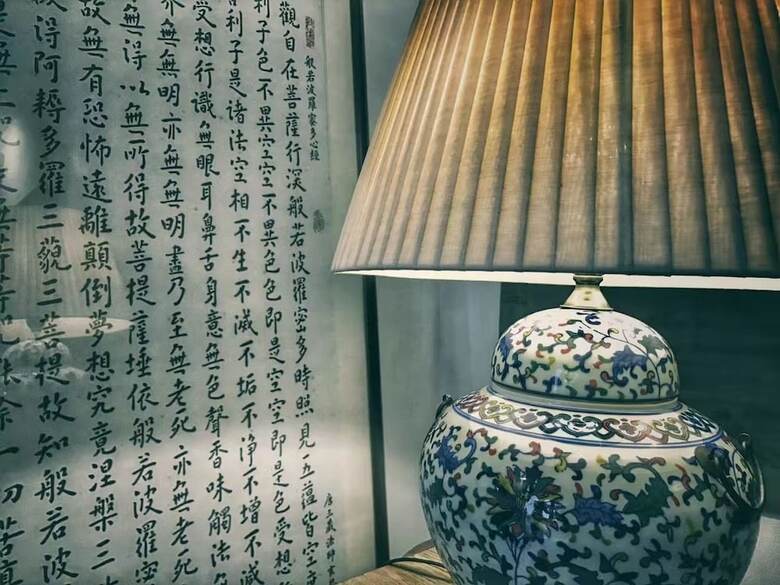 般若波羅蜜多心經
觀自在菩薩行深般若波羅蜜多時照見五蘊皆空
利子色不異空空不異色色即是空空即是色受想
利子是諸法空相不生不滅不垢不淨不增不減
受想行識無眼耳鼻舌身意無色聲香味觸法
亦無無明亦無無明盡乃至無老死亦無老死
無得以無所得故菩提薩埵依般若波羅蜜
故無有恐怖遠離顛倒夢想究竟涅槃三
故得阿耨多羅三藐三菩提故知般若波
是無上咒是無等等咒能除一切苦真
唐三藏法師玄